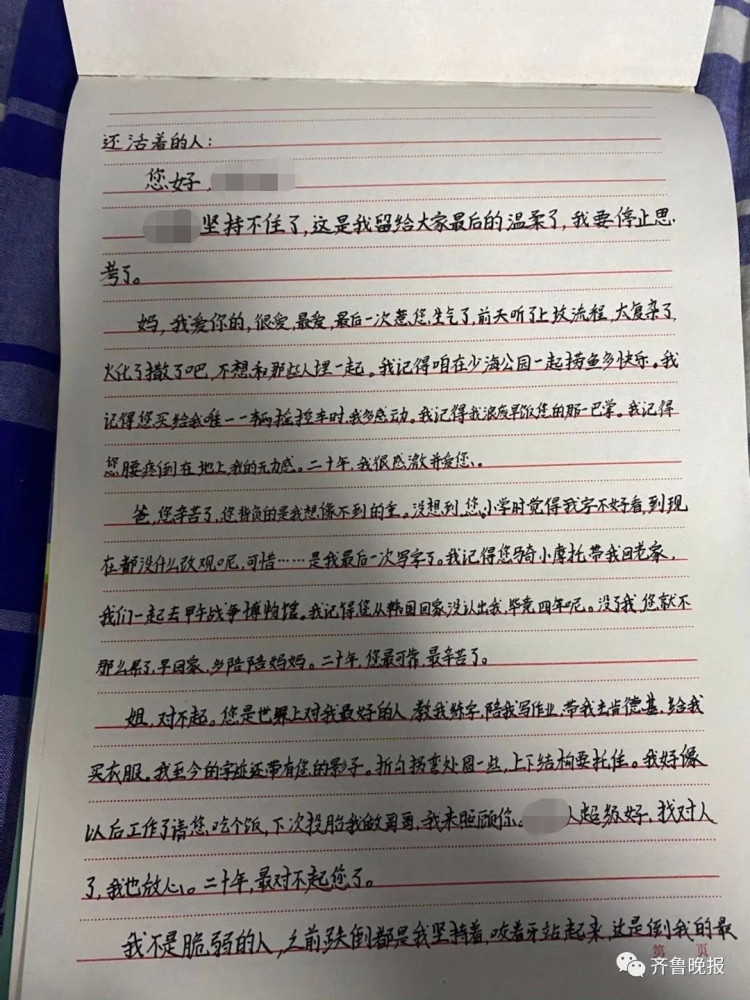 还活着的人：
您好，
坚持不住了，这是我留给大家最后的温柔了，我要停止思
考了。
妈，我爱你的，很爱，最爱，最后一次惹您生气了，前天听了上坟流程，太复杂了，
火化了撒了吧，不想和那些人埋一起。我记得咱在少海公园一起捞鱼多快乐。我
记得您买给我唯一一辆摇控车时，我多感动。我记得我浪废早饭您的那一巴掌。我记得
您腰疼倒在地上，我的无力感。二十年，我很感激并爱您、。
爸，您辛苦了，您背负的是我想像不到的重。没想到，您、小学时觉得我字不好看，到现
在都没什么改观呢，可惜……是我最后一次写字了。我记得您骑小摩托带我回老家，
我们一起去甲午战争博物馆。我记得您从韩国回家没认出我，毕竟四年呢。没了我，您就不
那么累了，早回家，多陪陪妈妈。二十年，您最可靠，最辛苦了。
姐，对不起。您是世界上对我最好的人，教我练字，陪我写作业，带我去肯德基，给我
买衣服。我至今的字迹还带有您的影子。折勾拐弯处圆一些，上下结构要托住。我好像
以后工作了请您吃个饭，下次投胎我做哥哥，我来照顾你。人超级好，找对人
了，我也放心。二十年，最对不起您了。
我不是脆弱的人，之前跌倒都是我坚持着，咬着牙站起来，这是倒我的最
第 页
齐鲁晚报